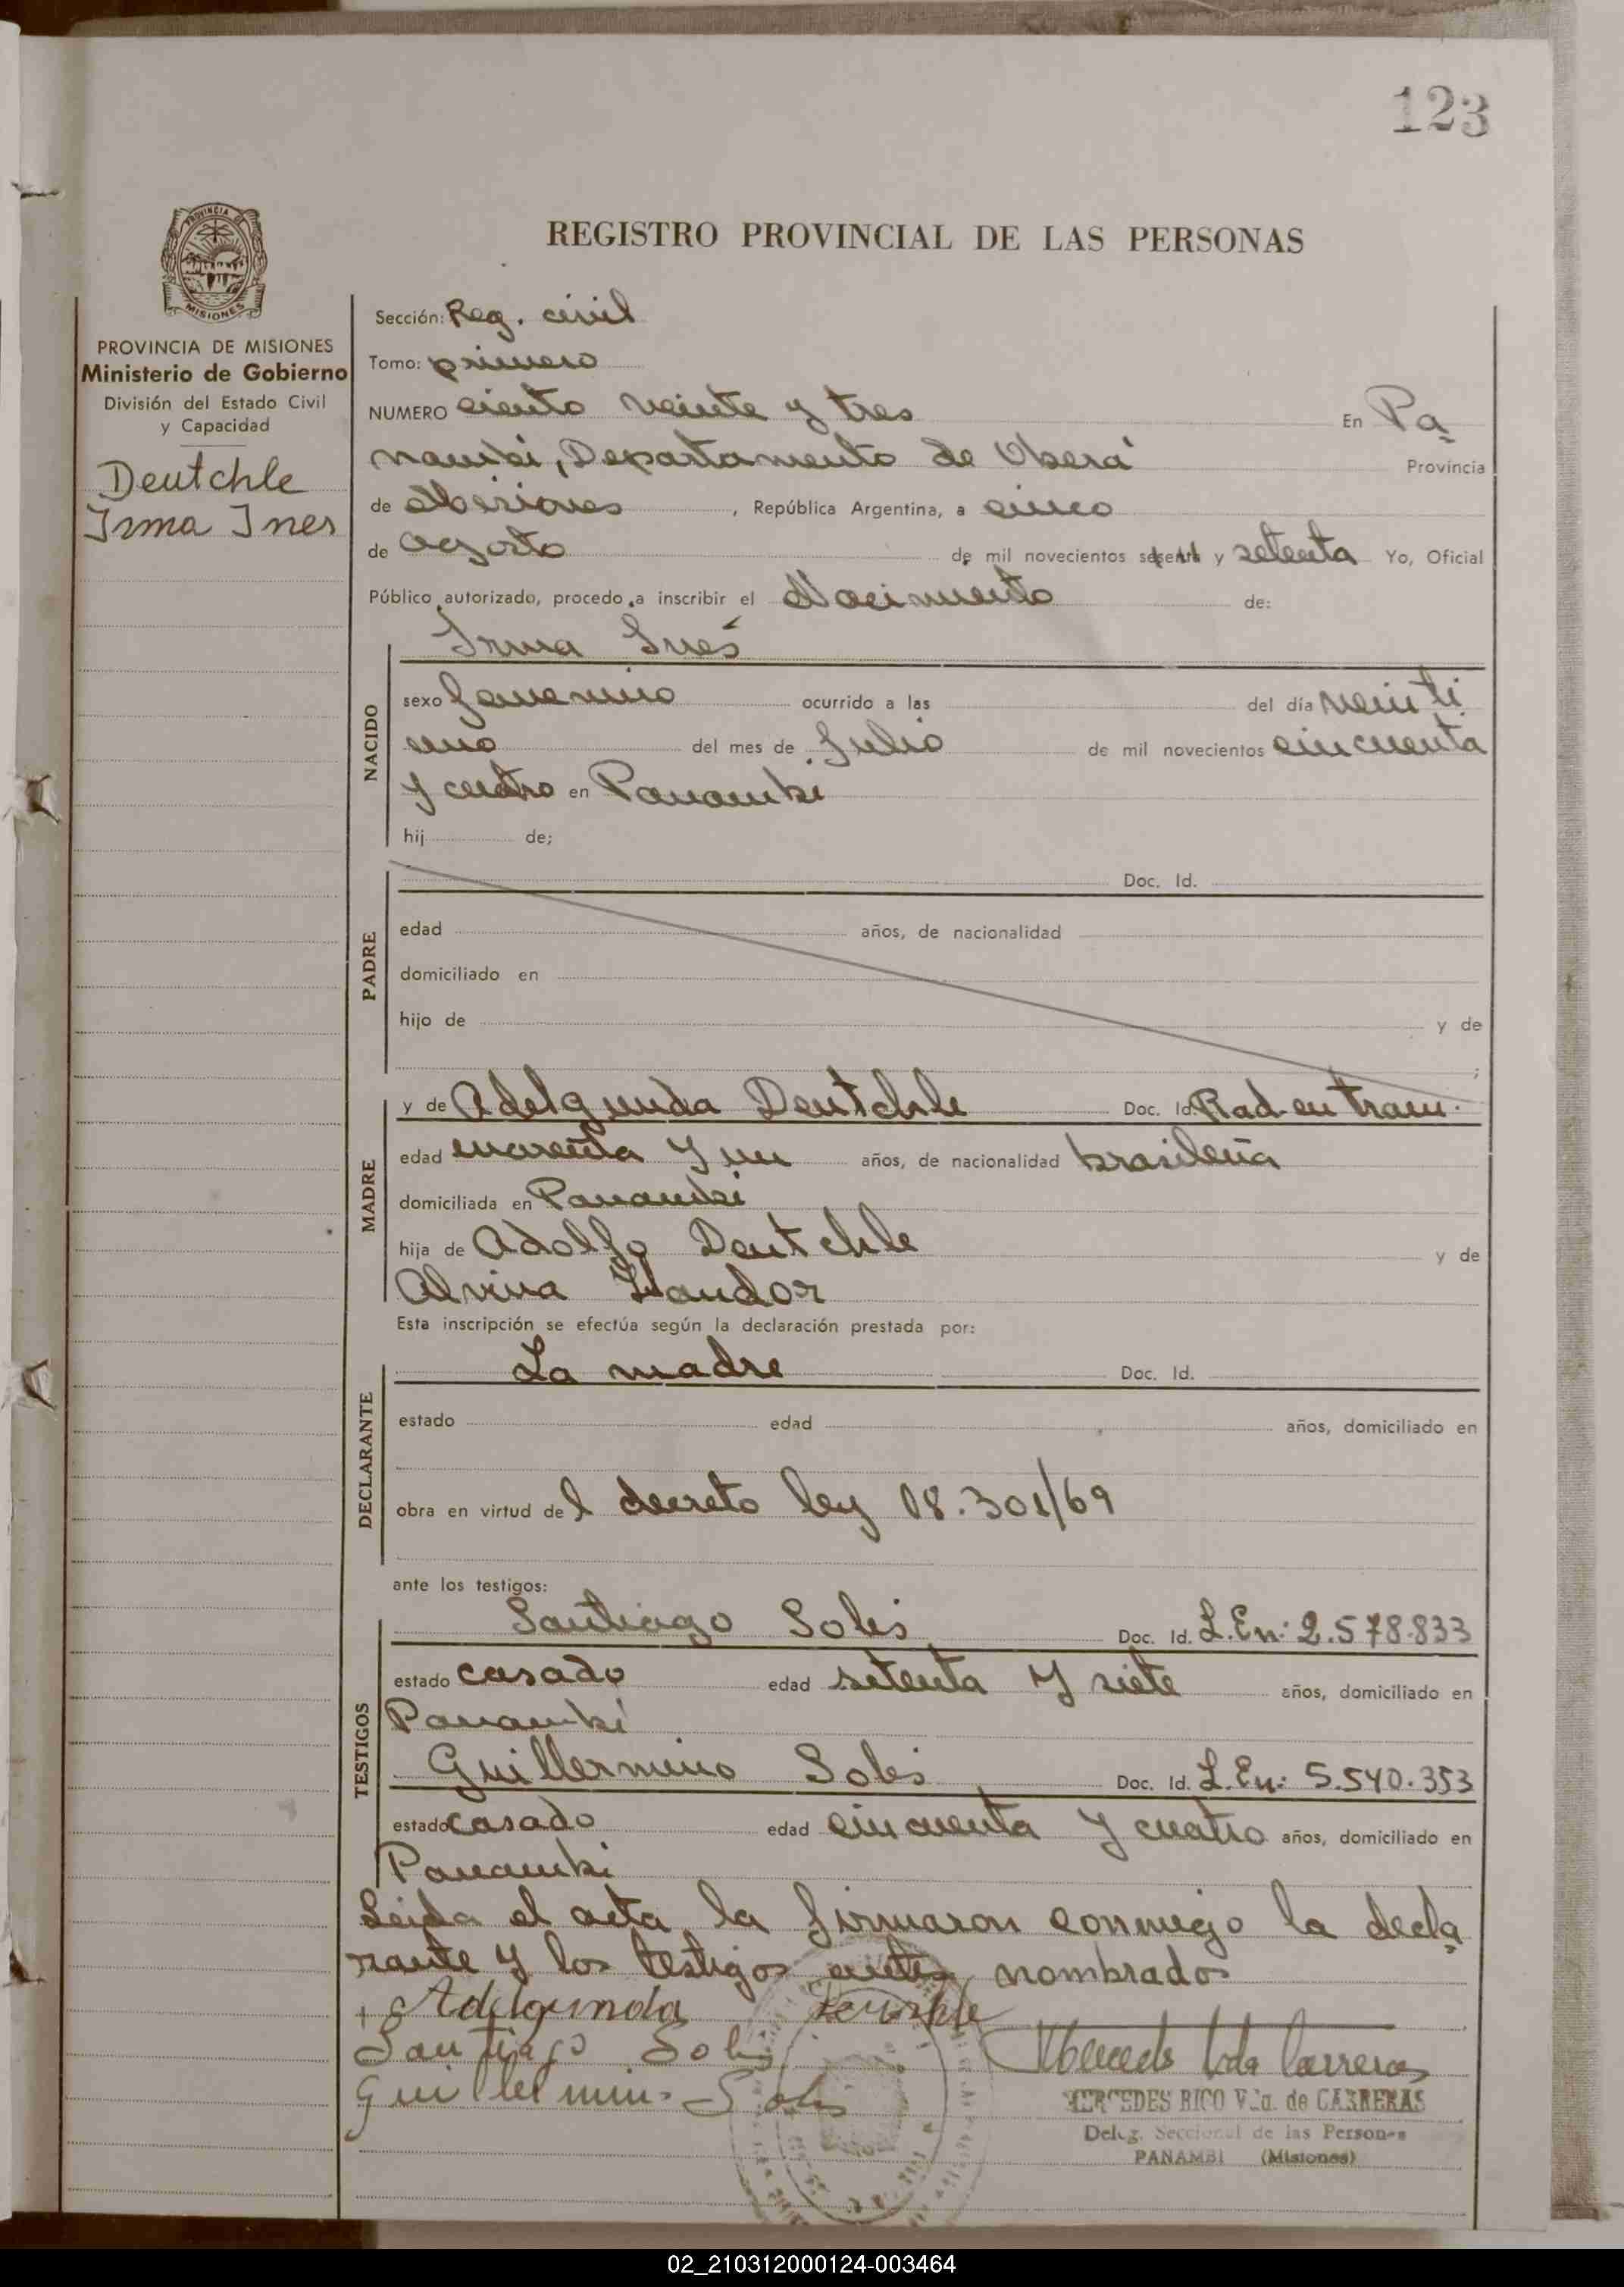 123
PROVINCIA DE
MISIONES
REGISTRO PROVINCIAL DE LAS PERSONAS
PROVINCIA DE MISIONES
Ministerio de Gobierno
División del Estado Civil
y Capacidad
Deutchle
Irma Ines
Sección: Reg. civil
Tomo: primero
NUMERO ciento veinte y tres En Pa
nambi, Departamento de Oberá Provincia
de Misiones, República Argentina, a cinco
de agosto de mil novecientos sesenta y setenta Yo, Oficial
Público autorizado, procedo a inscribir el Nacimiento de:
NACIDO
Irma Inés
sexo femenino ocurrido a las del día veinti
uno del mes de Julio de mil novecientos cincuenta
y cuatro en Panambi
hij de;
PADRE
Doc. Id.
edad años, de nacionalidad
domiciliado en
hijo de y de
;
MADRE
y de Adelgunda Deutchle Doc. Id. Rad. en tram.
edad cuarenta y un años, de nacionalidad brasileña
domiciliada en Panambi
hija de Adolfo Deutchle y de
Alvina
Esta inscripción se efectúa según la declaración prestada por:
DECLARANTE
La madre Doc. Id.
estado edad años, domiciliado en
obra en virtud del decreto ley 18.301/69
ante los testigos:
TESTIGOS
Santiago Solis Doc. Id. L.En: 2.578.833
estado casado edad setenta y siete años, domiciliado en
Panambi
Guillermino Solis Doc. Id. L.En: 5.540.353
estado casado edad cincuenta y cuatro años, domiciliado en
Panambi
Leida el acta la firmaron conmigo la decla
rante y los testigos antes nombrados
Adelgunda
Santiago Solis
Guillermino Solis
MERCEDES RICO Vda. de CARRERAS
Deleg. Seccional de las Personas
PANAMBI (Misiones)
02_210312000124-003464